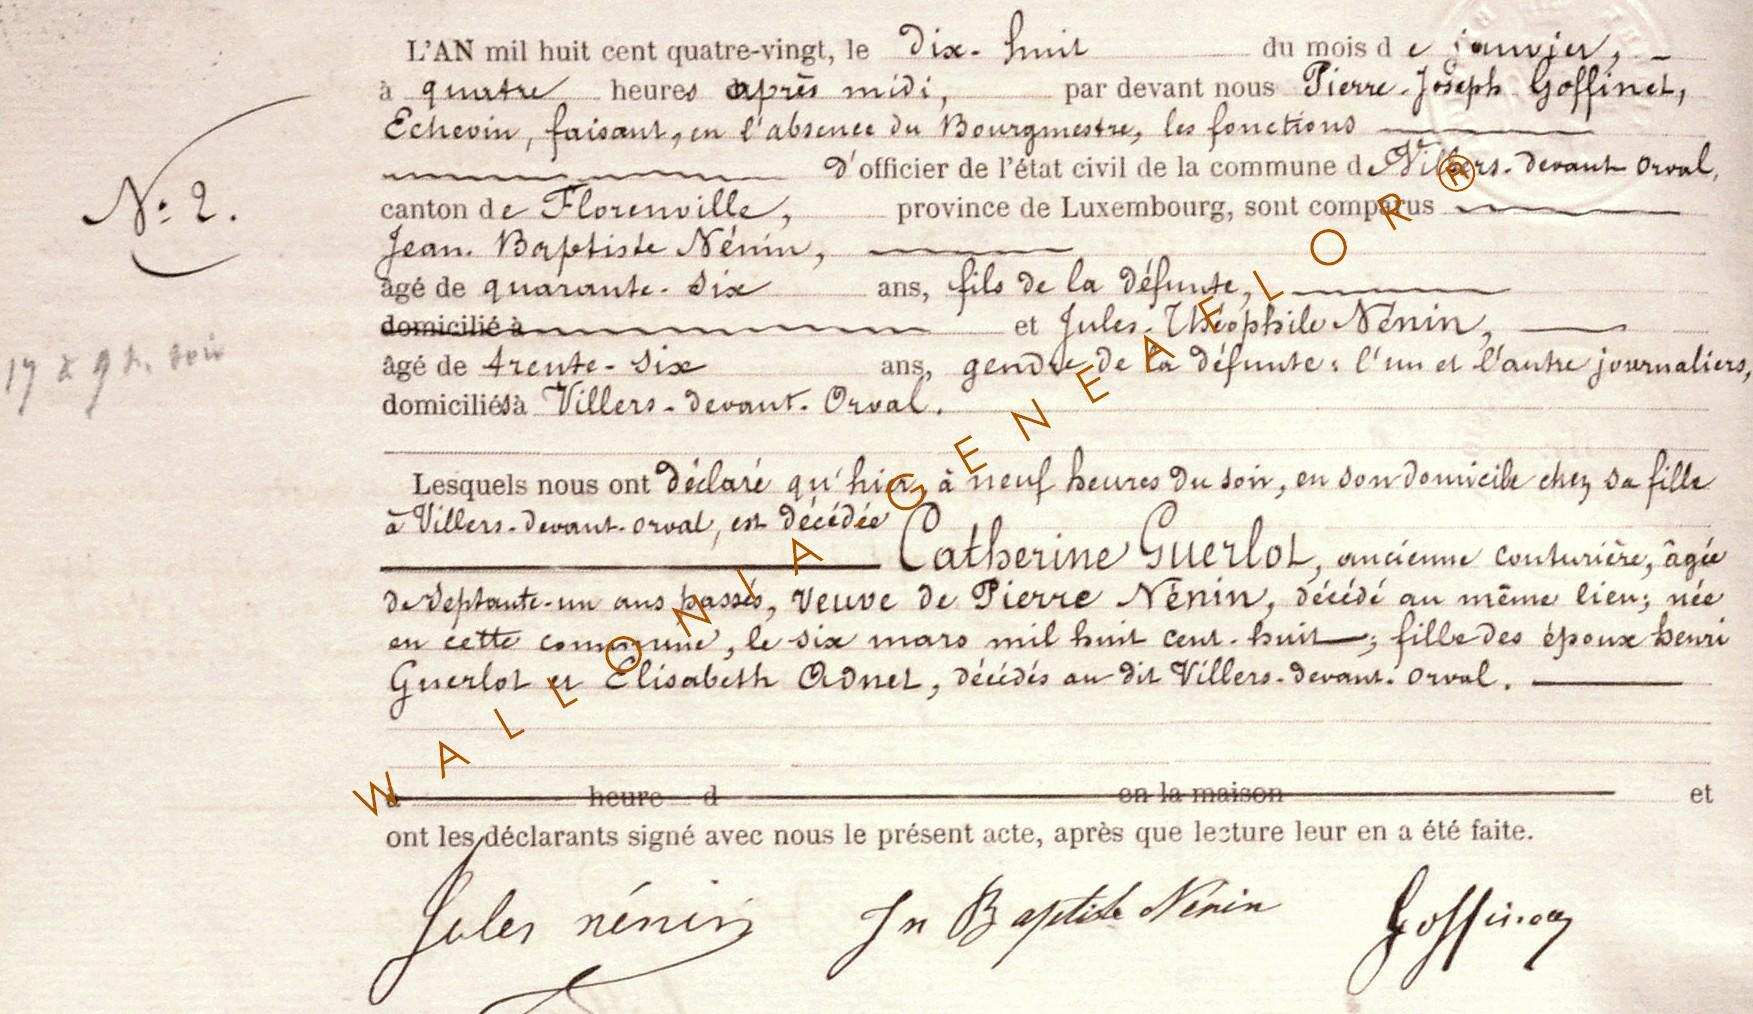 L'AN mil huit cent quatre-vingt, le dix-huit du mois de janvier,
à quatre heures après midi, par devant nous Pierre-Joseph Goffinet,
Echevin, faisant, en l'absence du Bourgmestre, les fonctions
d'officier de l'état civil de la commune de Villers-devant-Orval,
canton de Florenville, province de Luxembourg, sont comparus
N° 2.
Jean-Baptiste Nénin,
âgé de quarante-six ans, fils de la défunte,
domicilié à et Jules-Théophile Nénin,
17 à 9 h. soir
âgé de trente-six ans, gendre de la défunte; l'un et l'autre journaliers,
domiciliés à Villers-devant-Orval.
Lesquels nous ont déclaré qu'hier, à neuf heures du soir, en son domicile chez sa fille
à Villers-devant-Orval, est décédée
Catherine Guerlot, ancienne couturière, âgée
de septante-un ans passés, veuve de Pierre Nénin, décédé au même lieu; née
en cette commune, le six mars mil huit cent-huit; fille des époux henri
Guerlot et Elisabeth Adnet, décédés au dit Villers-devant-Orval.
à heure d en la maison et
ont les déclarants signé avec nous le présent acte, après que lecture leur en a été faite.
Jules nénin Jn Baptiste Nénin Goffinet
WALLONIA GENEAFLOR®